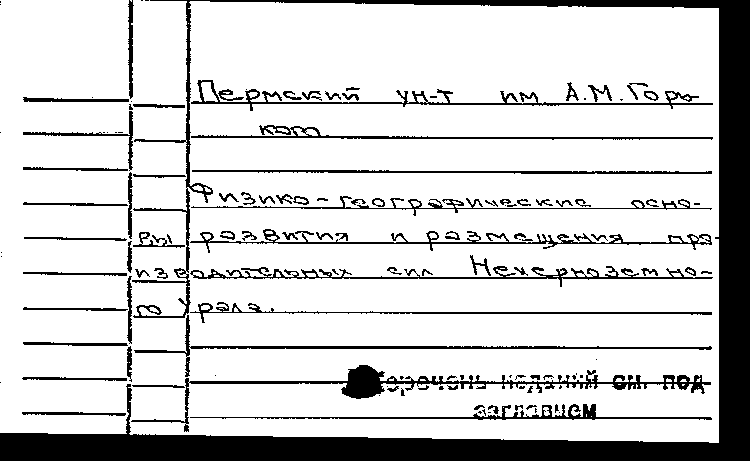 Пермский ун-т им А.М.Горь-
кого
Физико-географические осно-
вы развития и размещения про-
изводительных сил Нечерноземно-
го Урала.
Перечень изданий см. под
заглавием